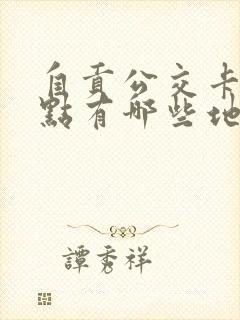 自貢公交卡
點有哪些地
譚秀祥